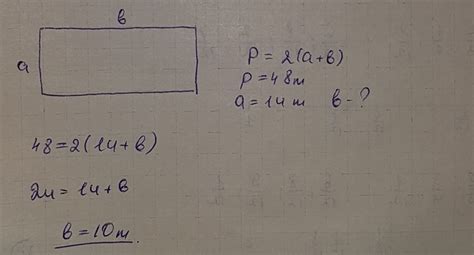 в
a
P = 2(a+в)
P = 48m
a = 14m в - ?
48 = 2(14+в)
24 = 14+в
в = 10m.